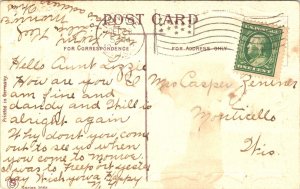 POST CARD
FOR CORRESPONDENCE
FOR ADDRESS ONLY
Hello Aunt Lizzie
How are you I
am fine and
dandy and Will is
alright again
Why dont you come
out to see us when
you come to Monroe
I was to Freeport yester
day Wish you a Happy
Mrs Casper Zentner
Monticello
Wis.
Printed in Germany